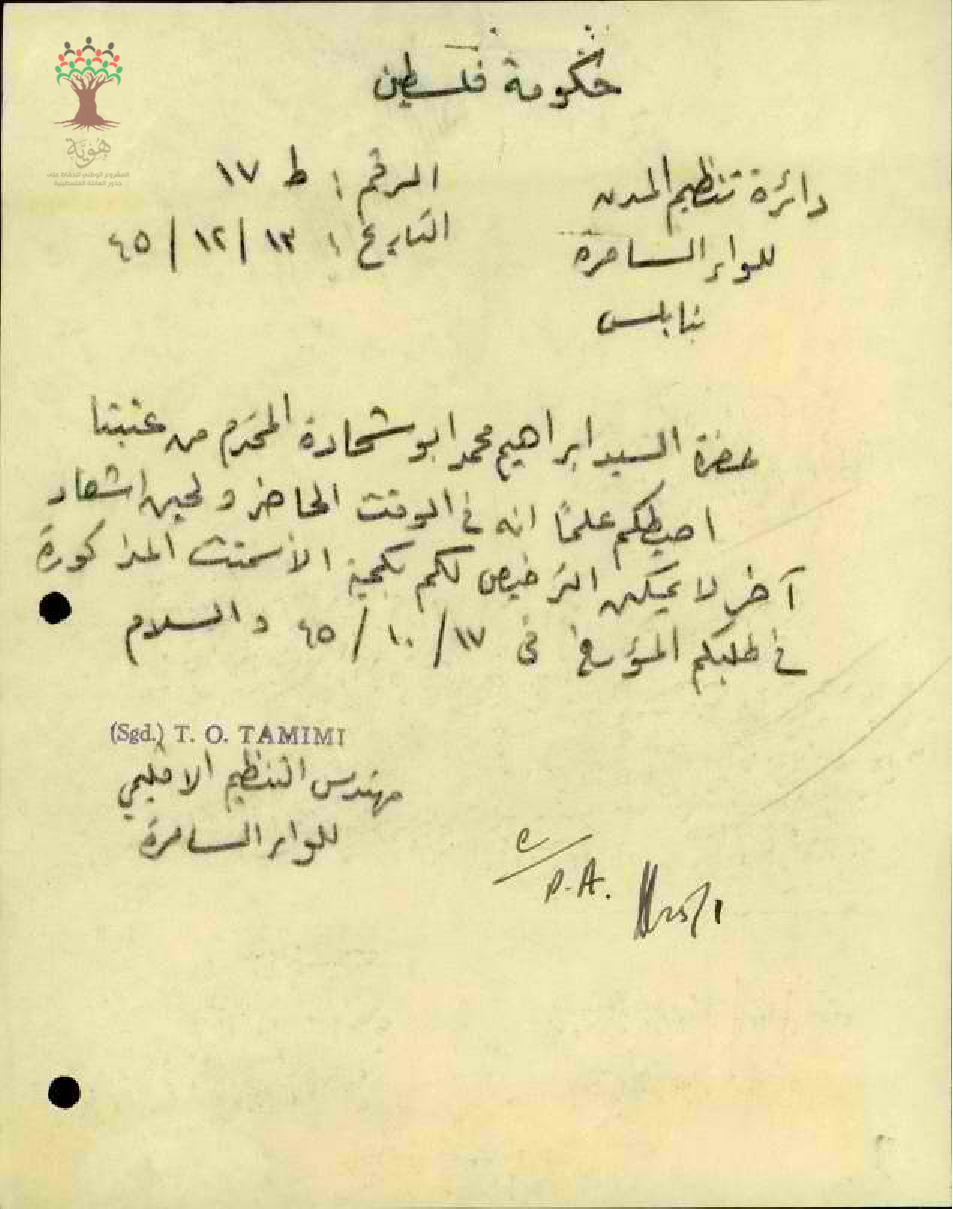 هُوِيَّة
المشروع الوطني للحفاظ على
جذور العائلة الفلسطينية
حكومة فلسطين
دائرة تنظيم المدن
للواء السامرة
نابلس
الرقم : ط ١٧
التاريخ : ١٣ / ١٢ / ٤٥
حضرة السيد ابراهيم محمد ابو شحادة المحترم من عنبتا
احيطكم علمًا انه في الوقت الحاضر ولحين اشعار
آخر لا يمكن الترخيص لكم بكمية الاسمنت المذكورة
في طلبكم المؤرخ في ١٧ / ١٠ / ٤٥ والسلام
(Sgd.) T. O. TAMIMI
مهندس التنظيم الاقليمي
للواء السامرة
P.A.